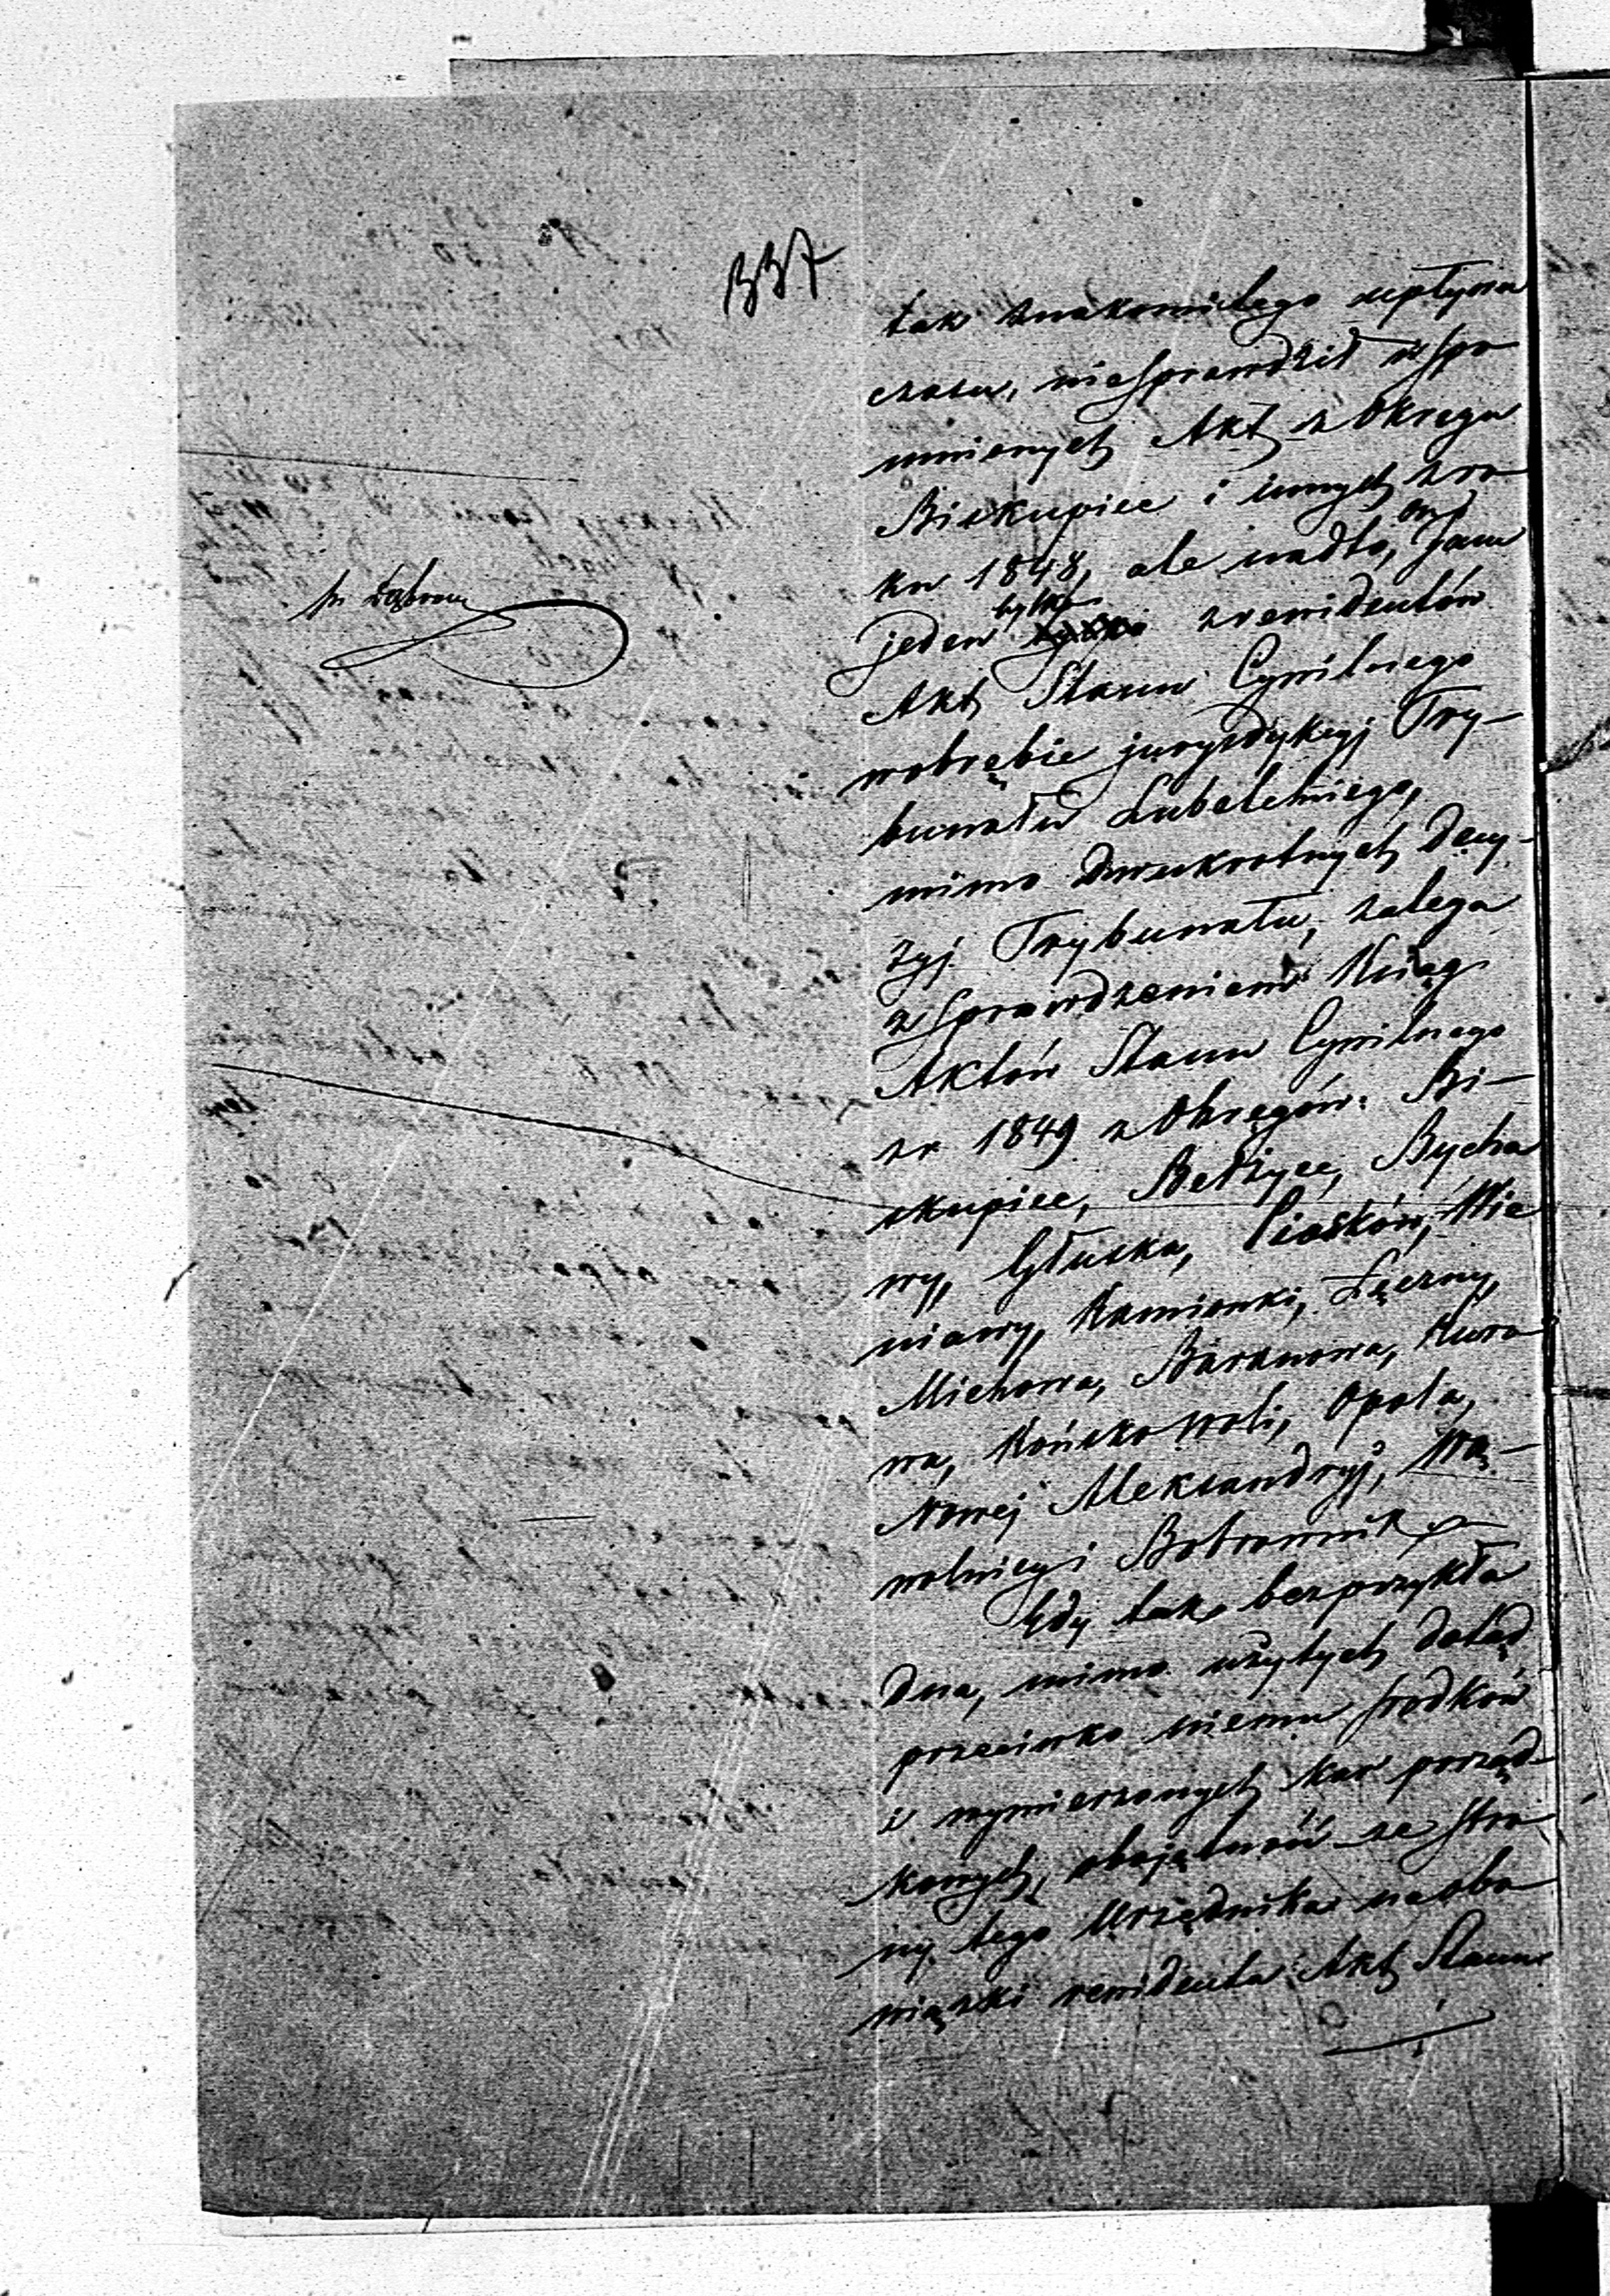 337
tak znakomitego upływu
czasu, niesprawdził wspo
mnionych Akt z Okręgu
Biskupice i innych z ro
ku 1848, ale nadto, sam
on
jeden tylko z rewidentów
Akt Stanu Cywilnego
wobrębie juryzdykcyj Try-
bunału Lubelskiego,
mimo dwukrotnych decy-
zyj Trybunału, zalega
z sprawdzeniem Xiąg
Aktów Stanu Cywilnego
z r 1849 z Okręgów: Bi-
skupice, Bełżyce, Bycha
wy, Głuska, Piasków, Mie
niawy, Kamionki, Łęczny,
Michowa, Baranowa, Kuro
wa, Końskowoli, Opola,
Nowej Aleksandryj, Wą-
wolnicy i Bobrownik
Gdy tak bezprzykła
dna, mimo użytych dotąd
przeciwko niemu srodków
i wymierzonych kar porząd-
kowych, obojętność ze stro
ny tego Urzędnika na obo
wiązki rewidenta Akt Stanu